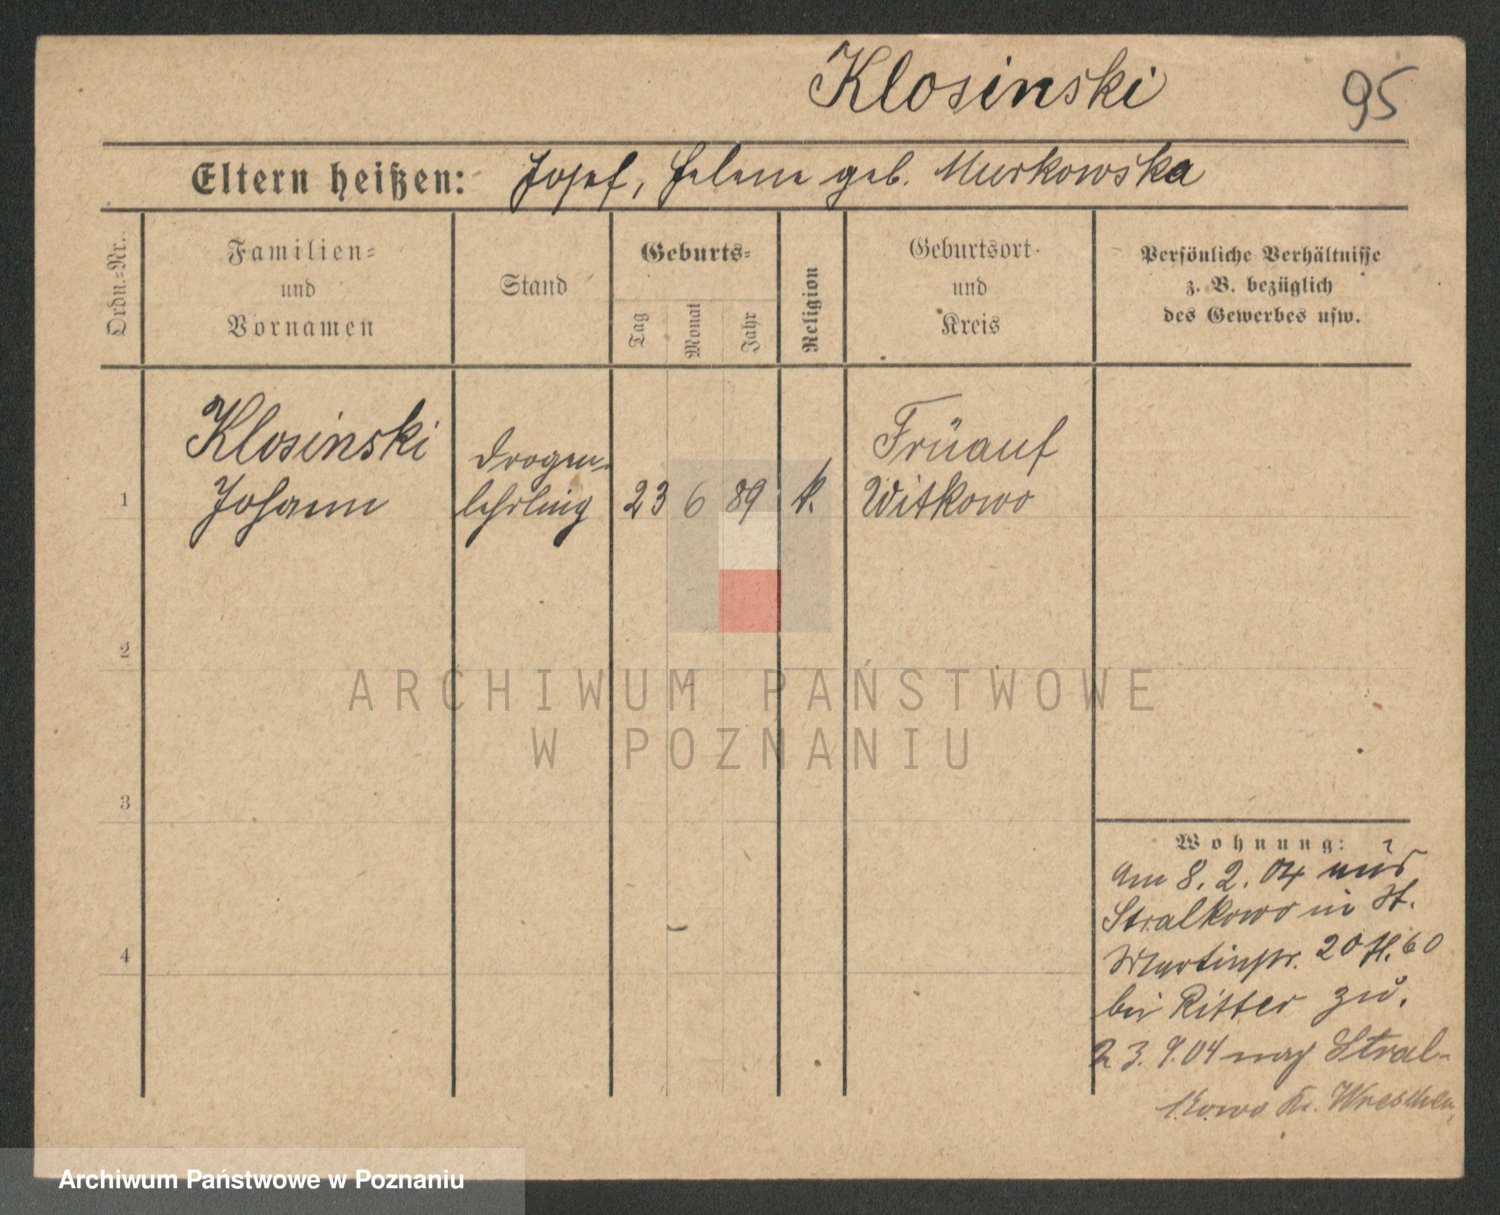 Klosinski
95
Eltern heißen: Josef, Helene geb. Murkowska
Ordn.=Nr.
Familien=
und
Vornamen
Stand
Geburts=
Tag
Monat
Jahr
Religion
Geburtsort
und
Kreis
Persönliche Verhältnisse
z. B. bezüglich
des Gewerbes usw.
Klosinski
Johann
Drogen-
lehrling
1
23 6 89 k.
Früauf
Witkowo
2
3
4
Wohnung:
am 8. 2. 04 aus
Stralkowo in St.
Martinstr. 20 H. 60
bei Ritter zu.
23. 9. 04 nach Stral-
kowo Kr. Wreschen
ARCHIWUM PAŃSTWOWE
W POZNANIU
Archiwum Państwowe w Poznaniu